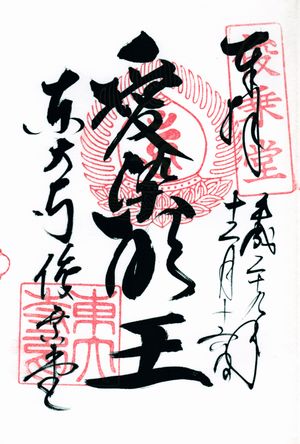 俊乗堂
奉拝
平成二十九年
十二月十六日
愛染明王
東大寺俊乗堂